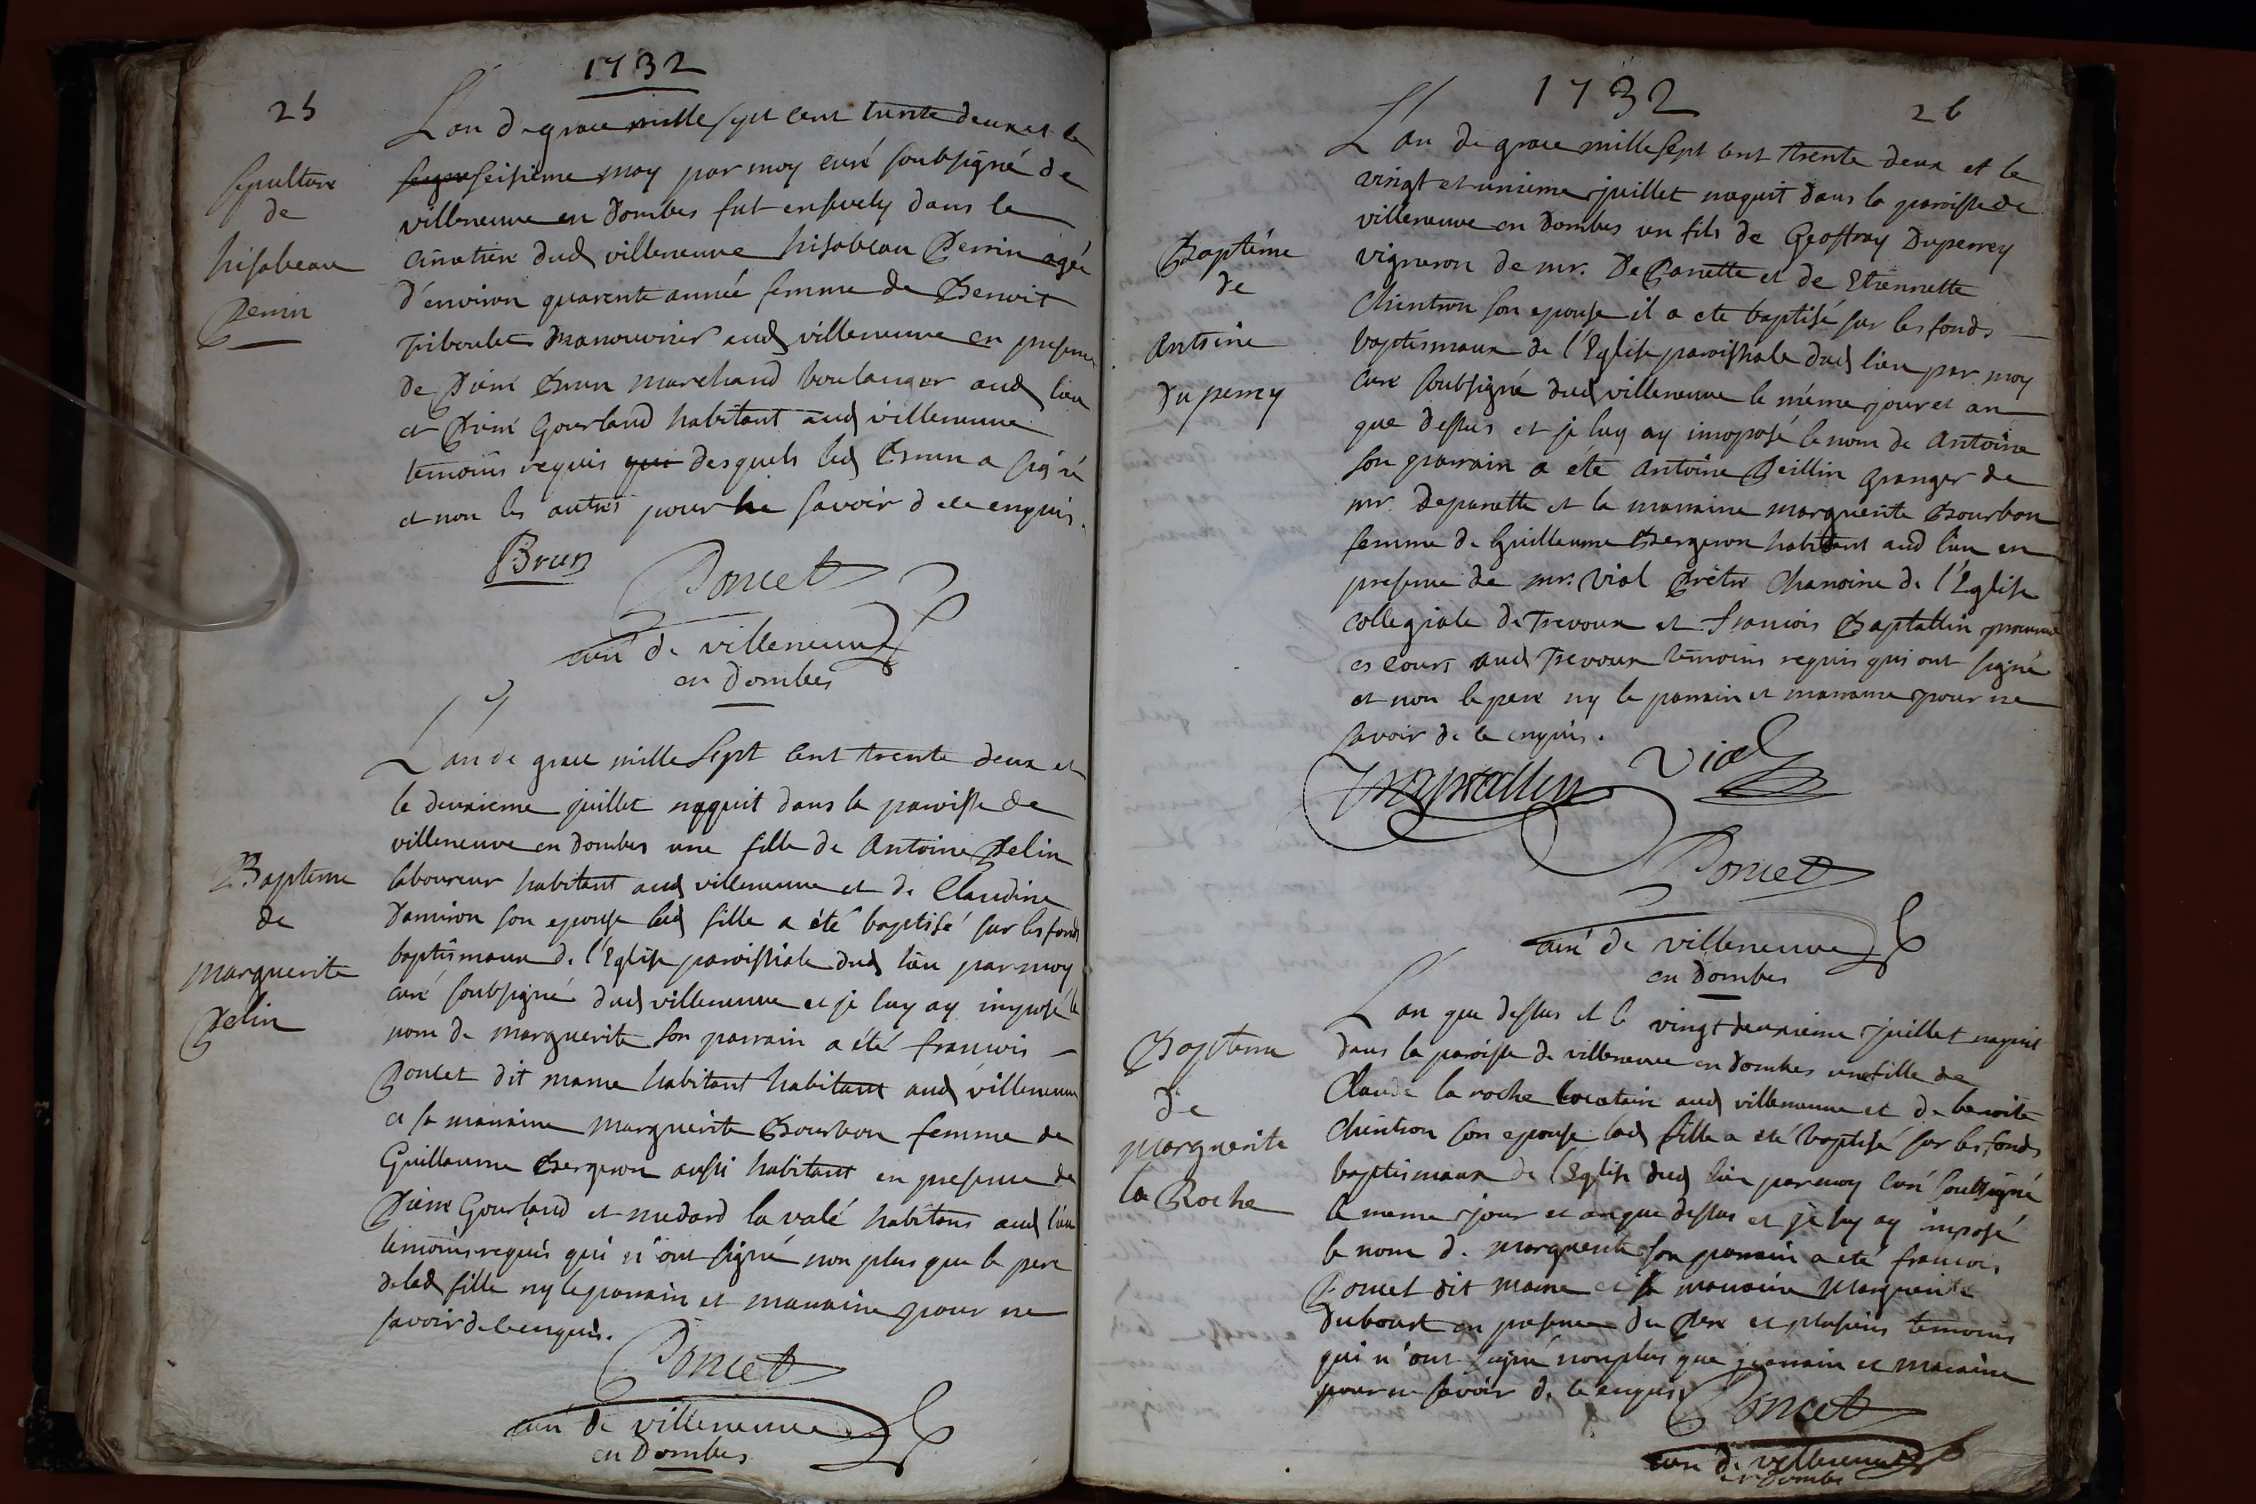 1732
25
L'an de grace mille sept cent trente deux et le
seisieme may par moy curé soubsigné de
villeneuve en Dombes fut ensevely dans le
cimetiere dud villeneuve hisabeau Perrin agée
d'environ quarente année femme de Benoit
Triboulet manouvrier aud villeneuve en presence
de Pierre Brun marchand boulanger aud lieu
et Pierre Gourland habitant aud villeneuve
temoins requis qui desquels led Brun a signé
et non les autres pour ne savoir d ce enquis.
sepulture
de
hisabeau
Perrin
Brun
Poncet
curé de villeneuve
en Dombes
L'an de grace mille sept cent trente deux et
le deuxieme juillet naquit dans la paroisse de
villeneuve en Dombes une fille de Antoine Pelin
laboureur habitant aud villeneuve et de Claudine
Damiron son epouse lad fille a été baptisé sur les fonds
baptismaux de l'Eglise paroissiale dud lieu par moy
curé soubsigné dud villeneuve et je luy ay imposé le
nom de marguerite son parrain a été francois
Poncet dit mame habitant habitant aud villeneuve
et sa maraine marguerite Bourbon femme de
Guillaume Bergeron aussi habitant en presence de
Pierre Gourland et medard la valé habitans aud lieu
temoins requis qui n'ont signé non plus que le pere
de lad fille ny le parrain et maraine pour ne
savoir de ce enquis.
Bapteme
de
marguerite
Pelin
Poncet
curé de villeneuve
en Dombes
1732
26
L'an de grace mille sept cent trente deux et le
vingt et unieme juillet naquit dans la paroisse de
villeneuve en Dombes un fils de Geoffray Duperrey
vigneron de mr. De Panette et de Etiennette
Chintron son epouse il a ete baptisé sur les fonds
baptismaux de l'Eglise paroissiale dud lieu par moy
curé soubsigné dud villeneuve le même jour et an
que dessus et je luy ay imoposé le nom de Antoine
son parrain a ete Antoine Peillin Granger de
mr. Depanette et la maraine marguerite Bourbon
femme de Guillaume Bergeron habitant aud lieu en
presence de mr. Vial Prêtre Chanoine de l'Eglise
collegiale de Trevoux et Francois Baptallin procureur
es cours aud Trevoux temoins requis qui ont signé
et non le pere ny le parrain et maraine pour ne
savoir de ce enquis.
Baptéme
de
Antoine
Duperrey
Vial
Poncet
curé de villeneuve
en Dombes
L'an que dessus et le vingt deuxieme juillet naquit
dans la paroisse de villeneuve en Dombes une fille de
Claude la roche locataire aud villeneuve et de benoite
Chintron son epouse lad fille a été baptisé sur les fonds
baptismaux de l'Eglise dud lieu par moy curé soubsigné
le meme jour et an que dessus et je luy ay imposé
le nom de marguerite son parrain a été francois
Poncet dit mame et sa maraine Marguerite
Dubourt en presence du Pere et plusieurs temoins
qui n'ont signé non plus que parrain et maraine
pour ne savoir de ce enquis
Bapteme
de
Marguerite
la Roche
Poncet
curé de villeneuve
en Dombes